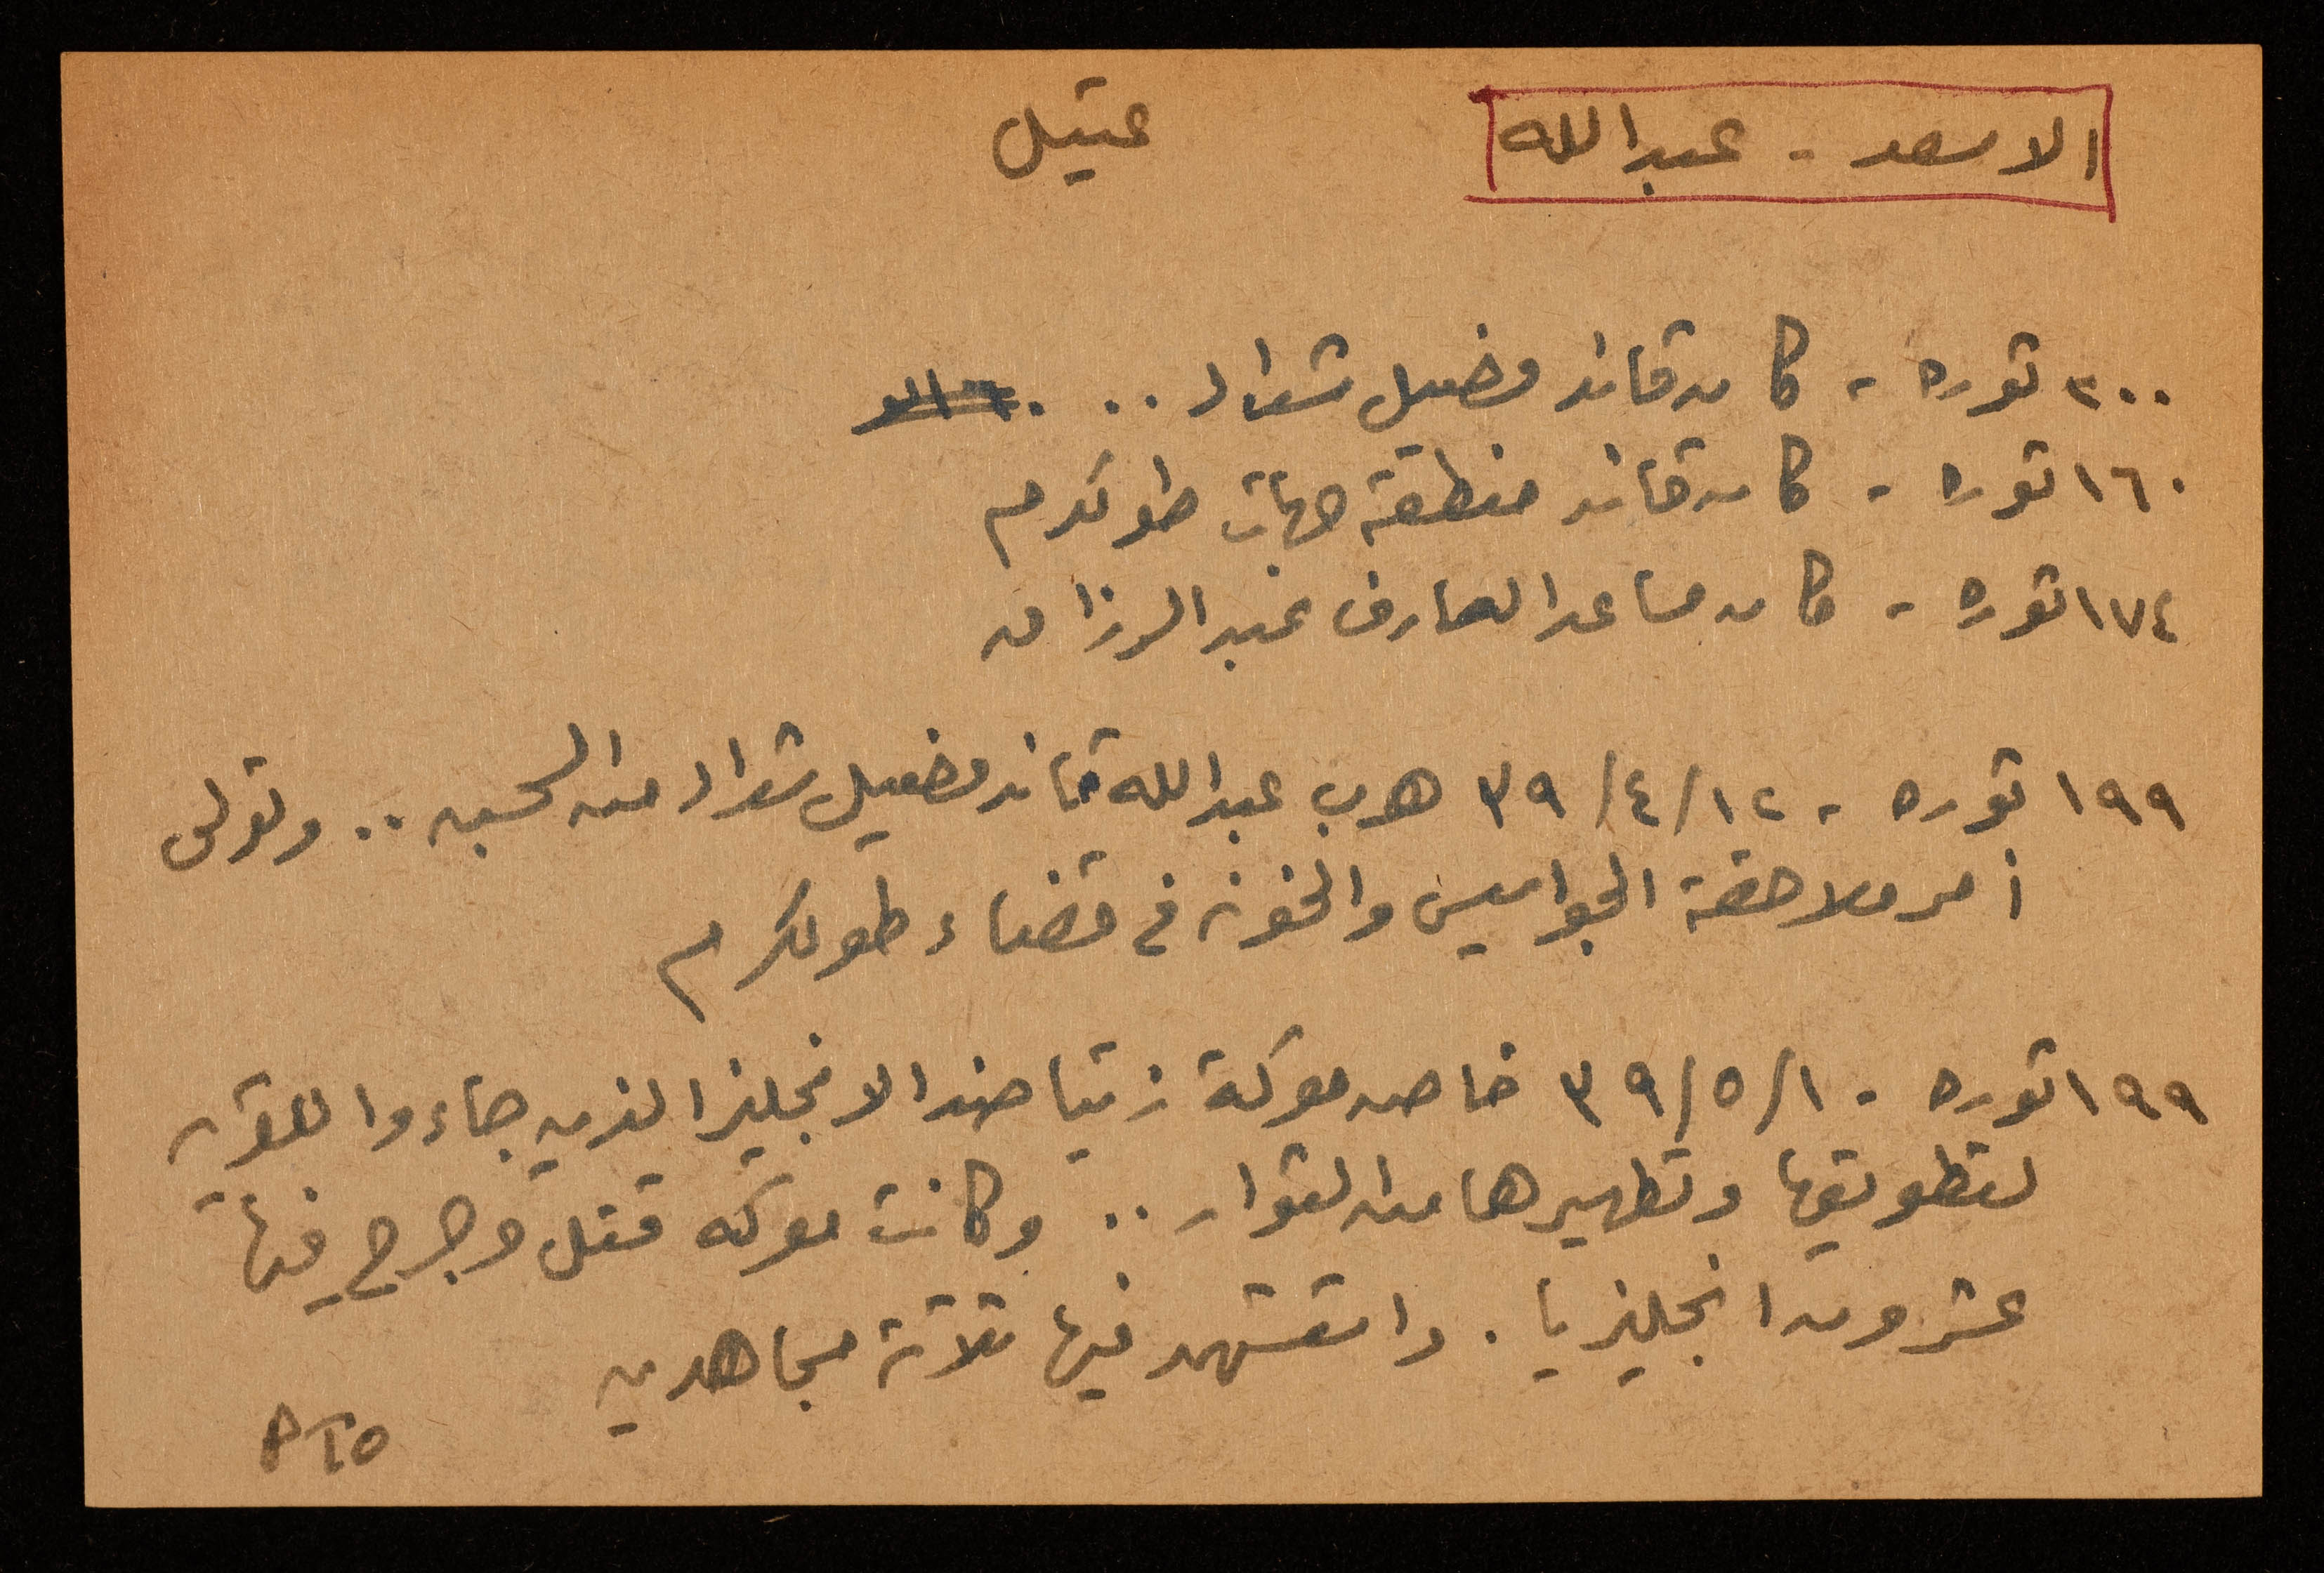 الاسعد - عبدالله
عتيل
٢٠٠ ثوره - كان قائد فصيل شداد ..
١٦٠ ثوره - كان قائد منطقة جهات طولكرم
١٧٤ ثوره - كان مساعد العارف عبد الرزاق
١٩٩ ثوره - ١٢/٤/٣٩ هرب عبدالله قائد فصيل شداد من السجن .. وتولى
أمر ملاحقة الجواسيس والخونة في قضاء طولكرم
١٩٩ ثوره - ١/٥/٣٩ خاض معركة زيتا ضد الانجليز الذين جاءوا للقرية
لتطويقها وتطهيرها من الثوار .. وكانت معركه قتل وجرح فيها
عشرون انجليزيا . واستشهد فيها ثلاثة مجاهدين